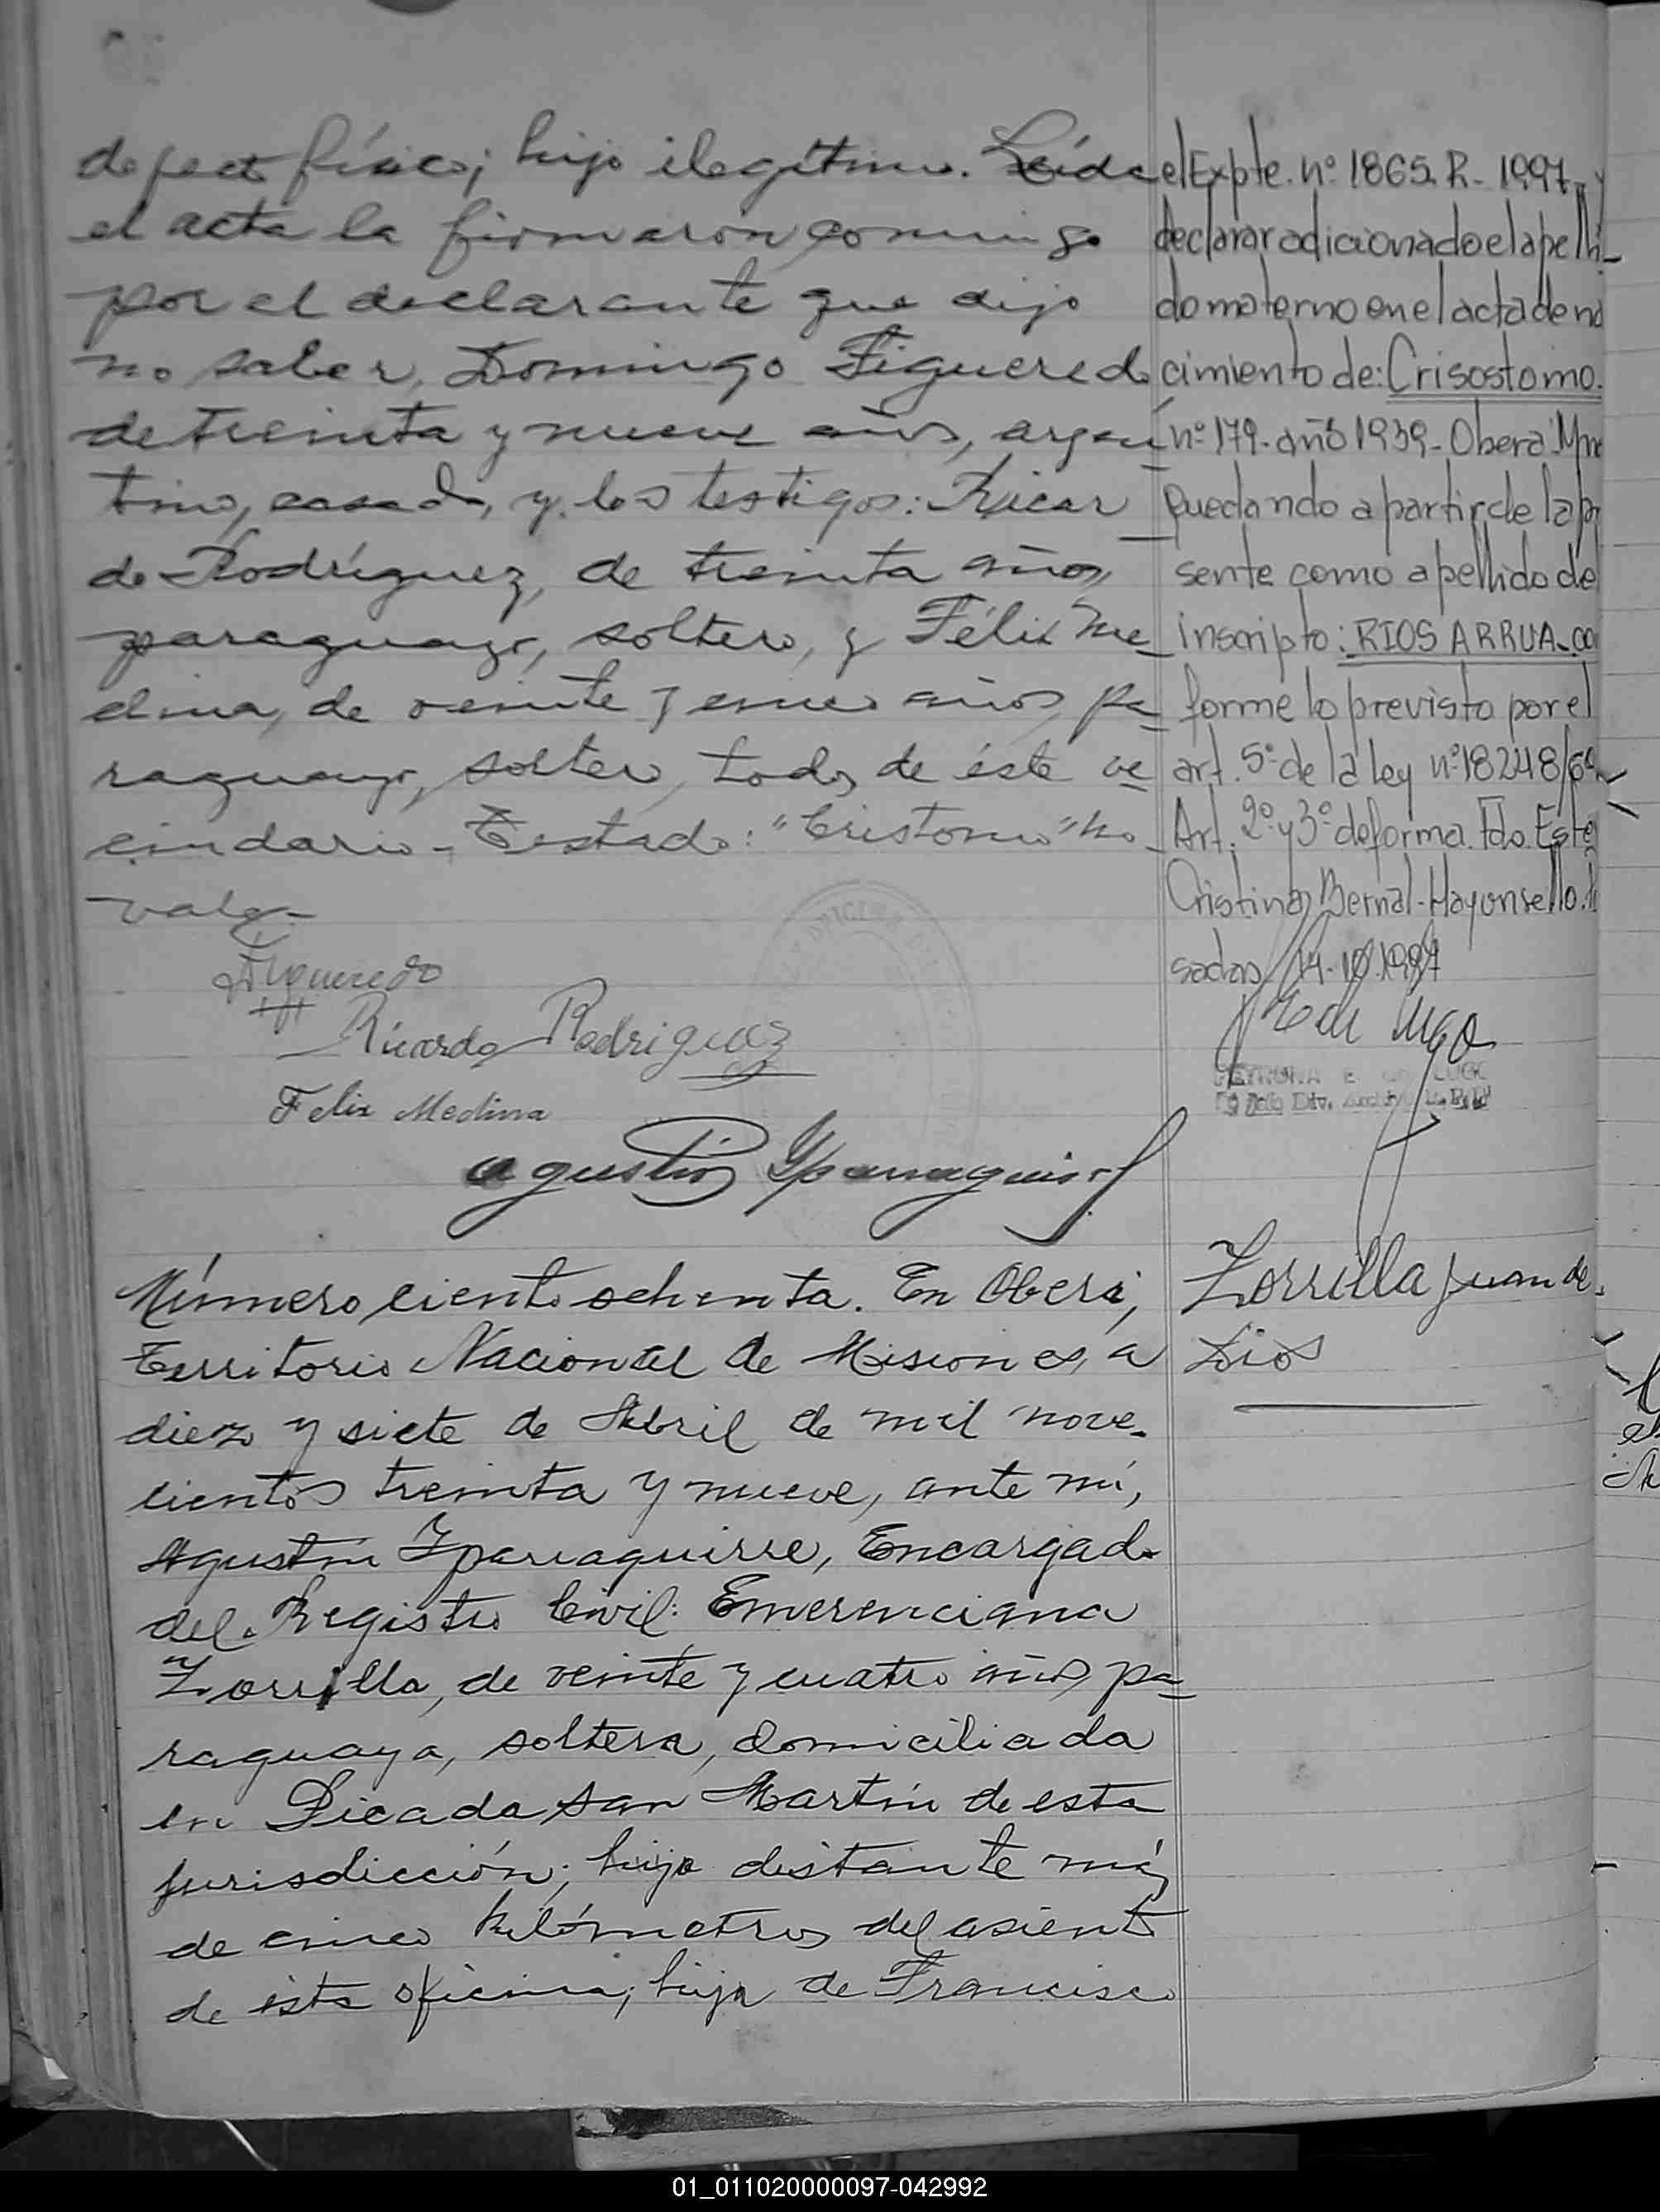 defecto físico; hijo ilegítimo. Leída
el acta la firmaron conmigo
por el declarante que dijo
no saber, Domingo Figueredo
de treinta y nueve años, argen
tino, casado, y los testigos: Ricar
do Rodríguez, de treinta años,
paraguayo, soltero, y Félix Me
dina, de veinte y cinco años, pa
raguayo, soltero, todos de éste ve
cindario - Testado: "Cristomo" no
vale.-
Figueredo
Ricardo Rodriguez
Felix Medina
Agustin Yparraguirre
el Expte. nº 1865. R - 1997 y
declarar adicionado el apelli-
do materno en el acta de na
cimiento de: Crisostomo.
nº 179 - año 1939 - Oberá Mnes
quedando a partir de la pr
sente como apellido de
inscripto: RIOS ARRUA - co
forme lo previsto por el
art. 5º de la ley nº 18248/69
Art. 2º y 3º de forma. Fdo. Este
Cristina Bernal - Hay un sello.
sadas 14.10.1997
Número ciento ochenta. En Oberá,
Territorio Nacional de Misiones, a
diez y siete de Abril de mil nove-
cientos treinta y nueve, ante mí,
Agustín Yparraguirre, Encargado
del Registro Civil: Emerenciana
Zorrilla, de veinte y cuatro años, pa
raguaya, soltera, domiciliada
en Picada San Martín de esta
jurisdicción; hijo distante más
de cinco kilómetros del asiento
de esta oficina; hija de Francisco
Zorrilla Juan de
Dios
01_011020000097-042992